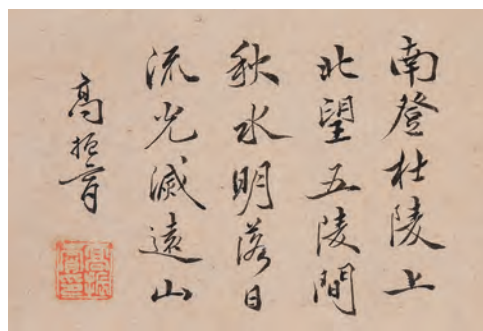 南登杜陵上
北望五陵間
秋水明落日
流光滅遠山
高振霄